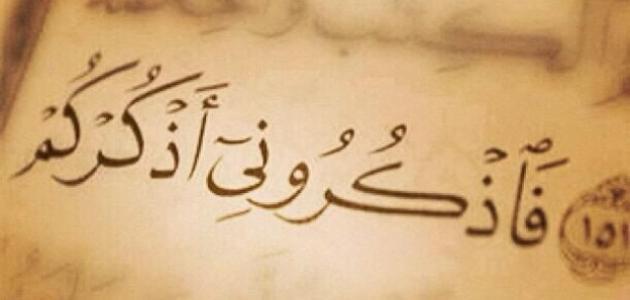 ١٥١ فَٱذْكُرُونِيٓ أَذْكُرْكُمْ